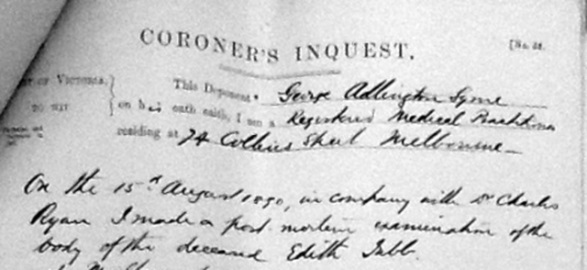 CORONER'S INQUEST.
[No. 28.
of Victoria,
TO WIT
This Deponent George Adlington Syme
on his oath saith, I am a Registered Medical Practitioner
residing at 74 Collins Street Melbourne
On the 15th August 1890, in company with Dr Charles
Ryan I made a post mortem examination of the
body of the deceased Edith